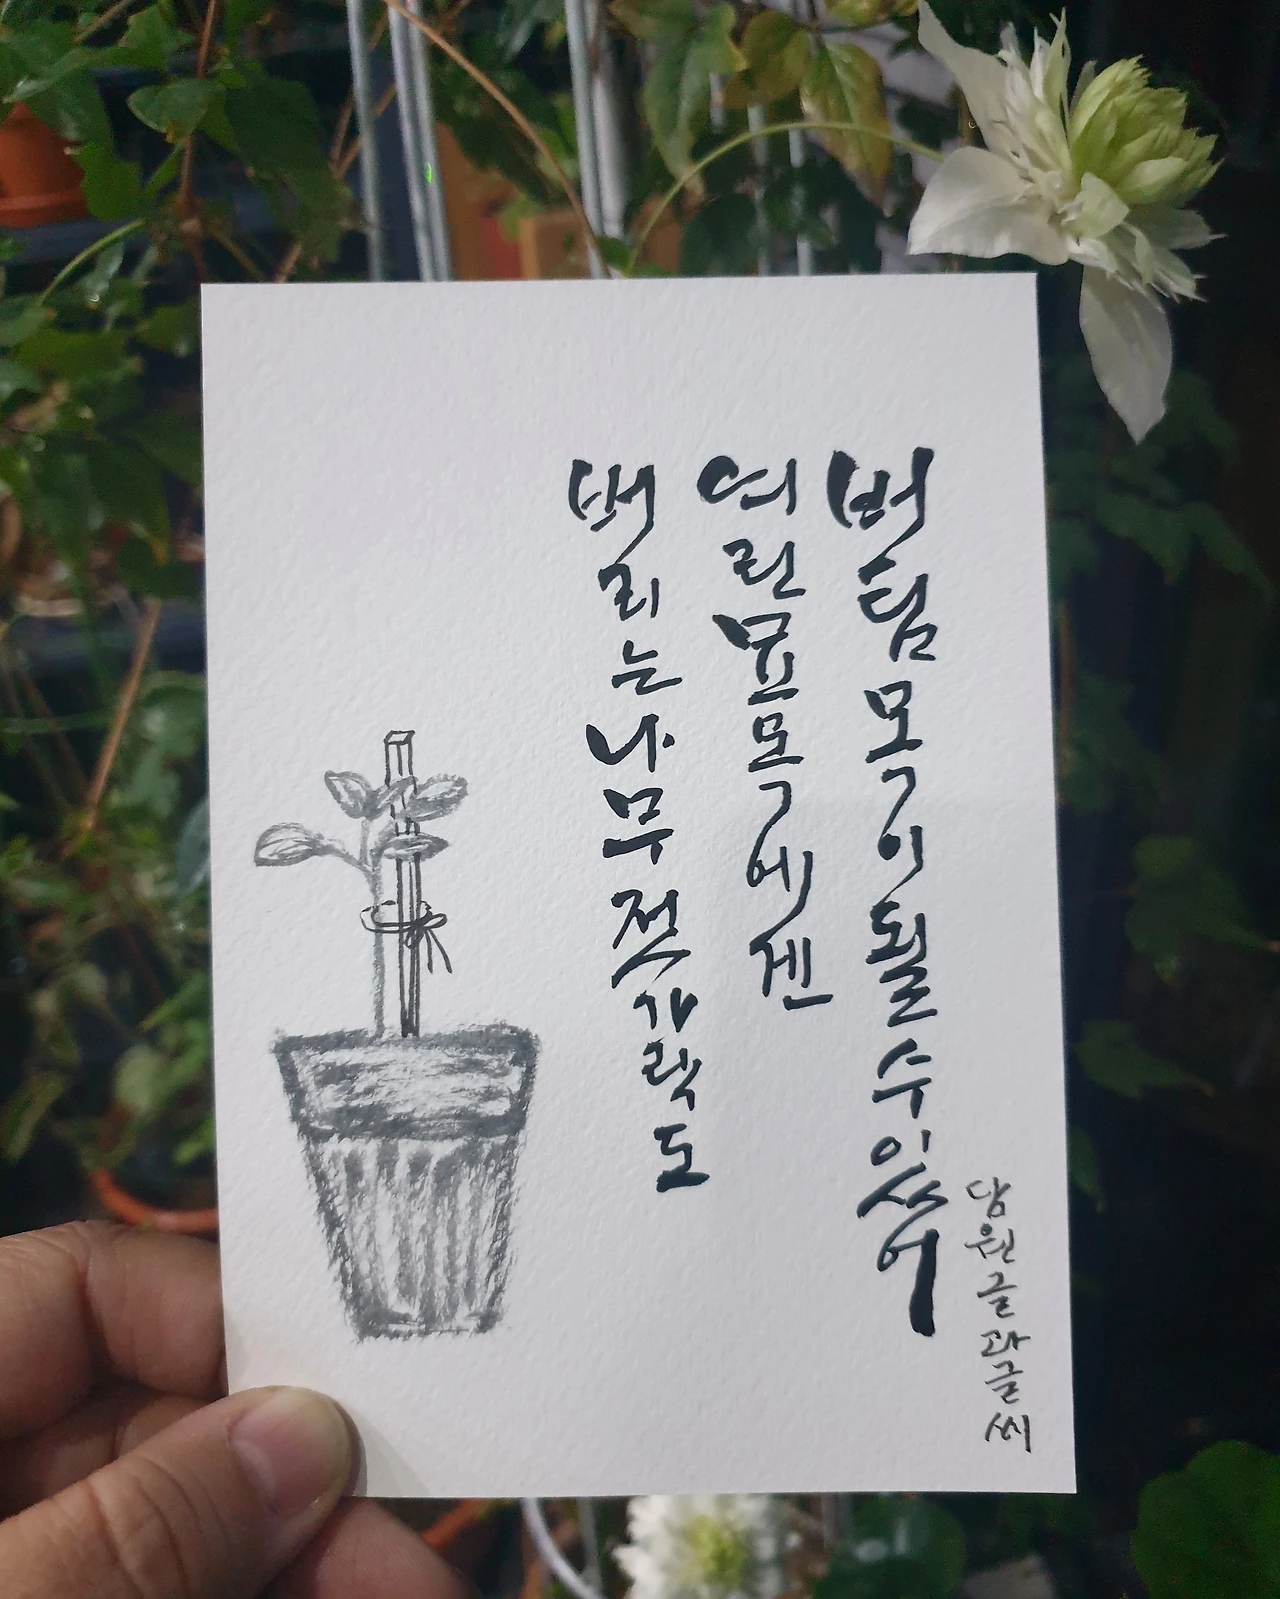 버리는나무젓가락도
여린묘목에겐
버팀목이될수있어
담원글과글씨